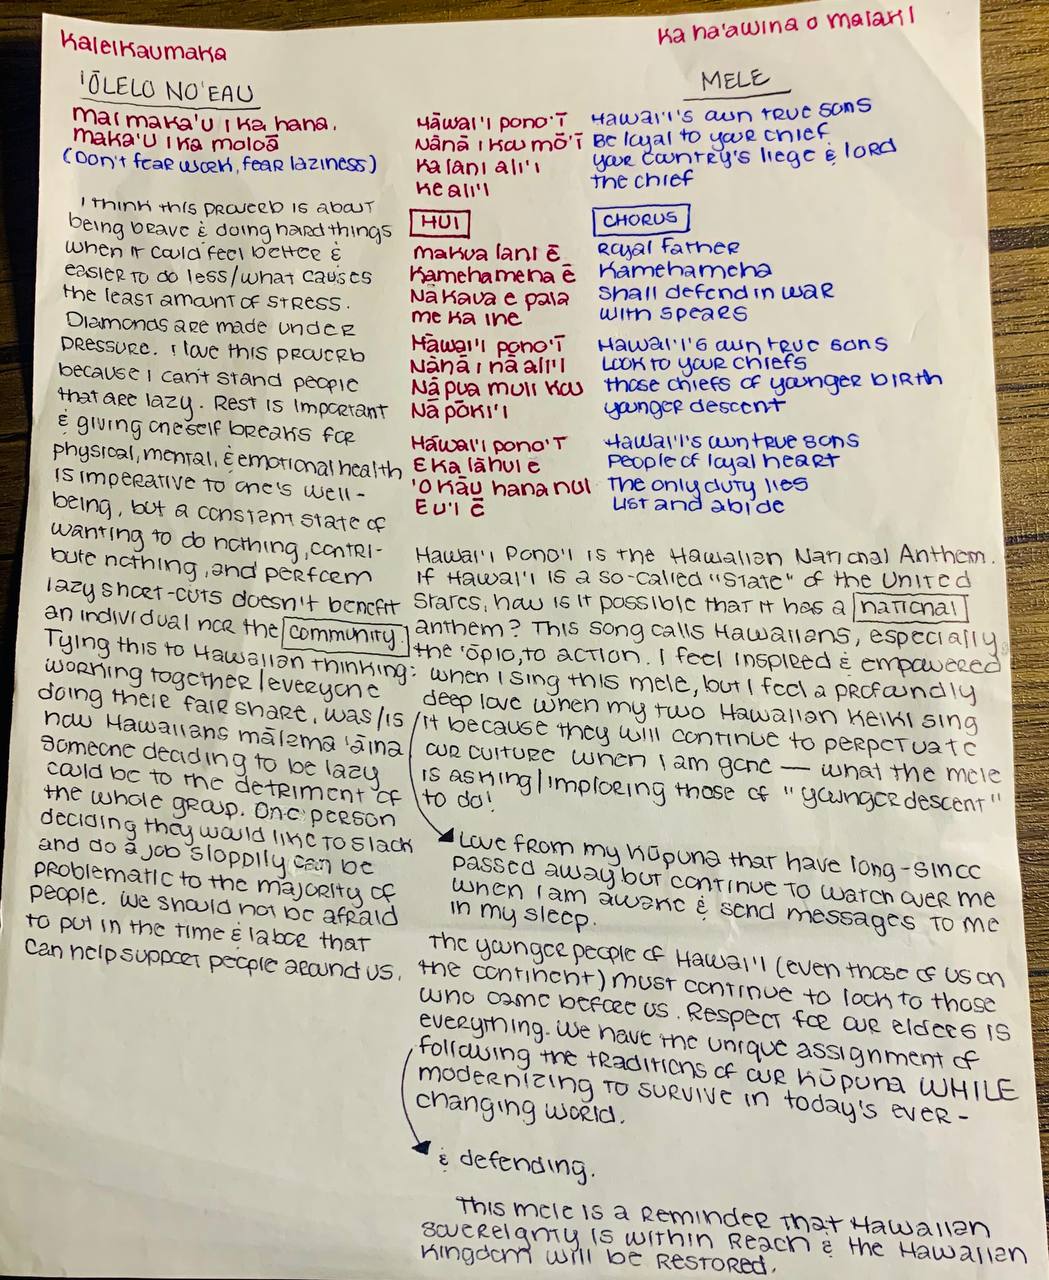 Kaleikaumaka
Ka ha'awina o malaki
'ŌLELO NO'EAU
Mai maka'u i ka hana,
maka'u i ka moloā
(Don't fear work, fear laziness)
I think this proverb is about
being brave & doing hard things
when it could feel better &
easier to do less/what causes
the least amount of stress.
Diamonds are made under
pressure. I love this proverb
because I can't stand people
that are lazy. Rest is important
& giving oneself breaks for
physical, mental, & emotional health
is imperative to one's well-
being, but a constant state of
wanting to do nothing, contri-
bute nothing, and perform
lazy short-cuts doesn't benefit
an individual nor the community.
Tying this to Hawaiian thinking:
working together/everyone
doing their fair share, was/is
how Hawaiians mālama 'āina
someone deciding to be lazy
could be to the detriment of
the whole group. One person
deciding they would like to slack
and do a job sloppily can be
problematic to the majority of
people. We should not be afraid
to put in the time & labor that
can help support people around us.
MELE
Hāwai'i pono'ī
Nānā i kou mō'ī
Ka lani ali'i
Ke ali'i
HUI
Makua lani ē
Kamehameha ē
Nā kaua e pala
me ka ihe
Hāwai'i pono'ī
Nānā i nā ali'i
Nā pua muli kou
Nā pōki'i
Hāwai'i pono'ī
E ka lāhui ē
'O kāu hana nui
E u'i ē
Hawai'i's own true sons
Be loyal to your chief
your country's liege & lord
the chief
CHORUS
Royal father
Kamehameha
Shall defend in war
with spears
Hawai'i's own true sons
Look to your chiefs
those chiefs of younger birth
younger descent
Hawai'i's own true sons
People of loyal heart
The only duty lies
List and abide
Hawai'i Pono'i is the Hawaiian National Anthem.
If Hawai'i is a so-called "State" of the United
States, how is it possible that it has a national
anthem? This song calls Hawaiians, especially
the 'ōpio, to action. I feel inspired & empowered
when I sing this mele, but I feel a profoundly
deep love when my two Hawaiian keiki sing
it because they will continue to perpetuate
our culture when I am gone — what the mele
is asking/imploring those of "younger descent"
to do!
Love from my kūpuna that have long-since
passed away but continue to watch over me
when I am awake & send messages to me
in my sleep.
The younger people of Hawai'i (even those of us on
the continent) must continue to look to those
who came before us. Respect for our elders is
everything. We have the unique assignment of
following the traditions of our kūpuna WHILE
modernizing to survive in today's ever-
changing world.
& defending.
This mele is a reminder that Hawaiian
sovereignty is within reach & the Hawaiian
Kingdom will be restored.